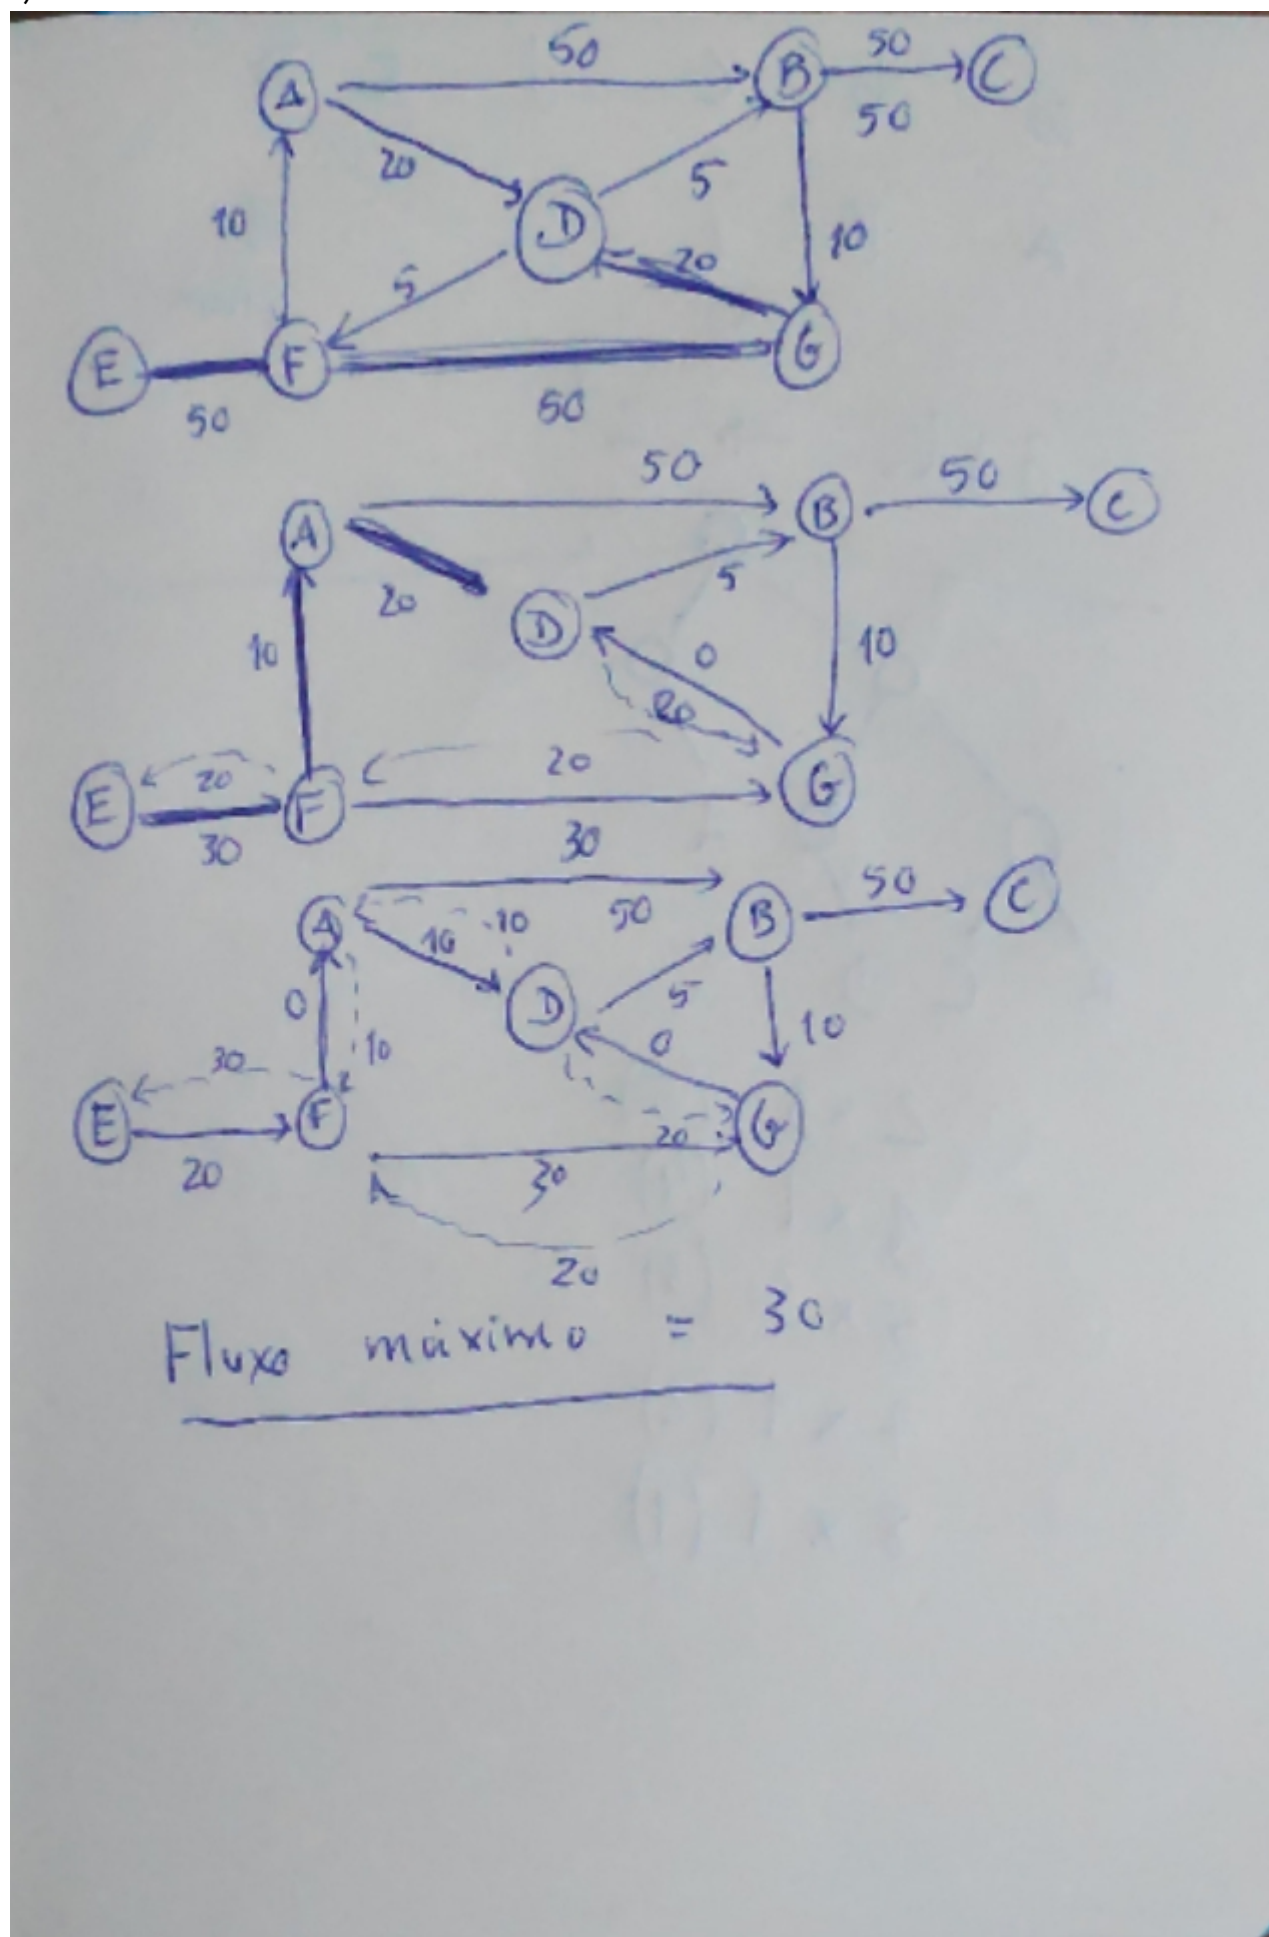 50
50
A
B
C
50
20
5
10
D
10
20
5
E
F
G
50
50
50
50
A
B
C
20
5
D
10
0
10
20
20
20
E
F
G
30
30
50
A
B
C
10
10
50
0
D
5
10
0
10
30
E
F
G
20
20
30
20
Fluxo máximo = 30